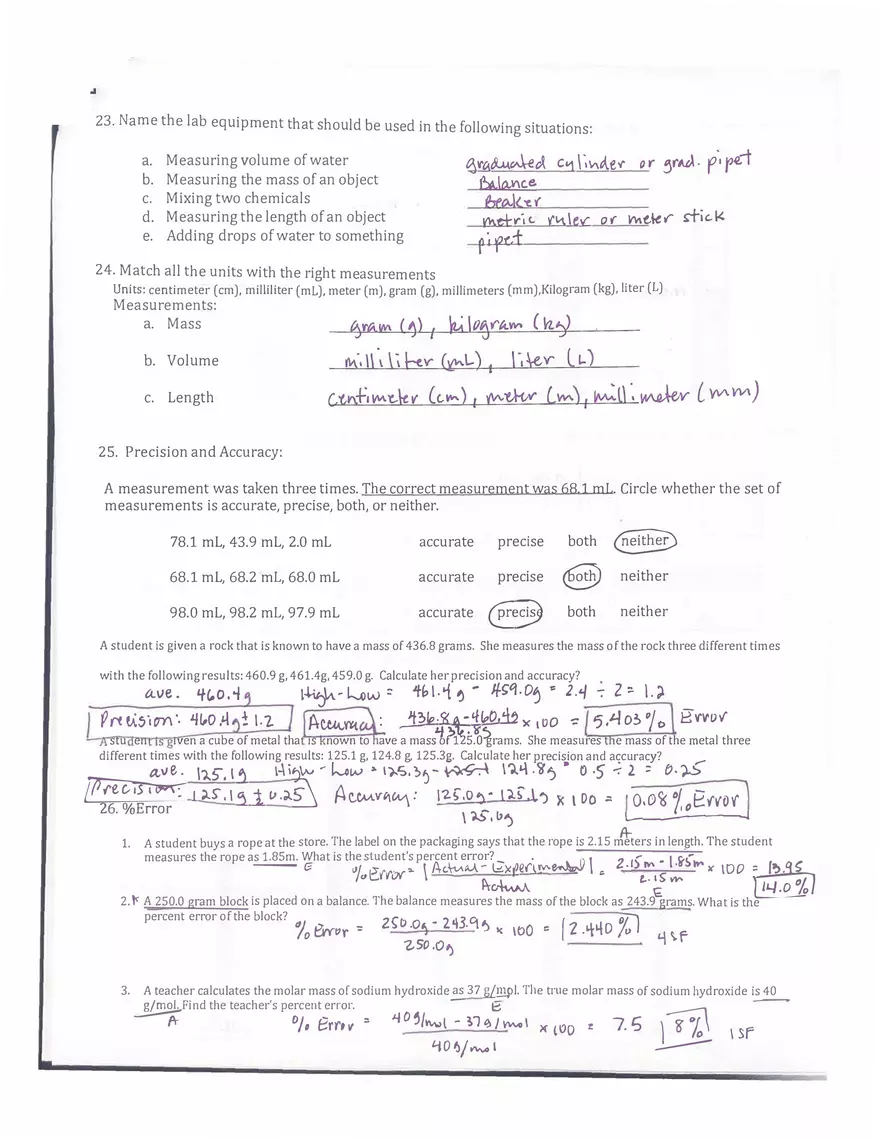 23. Name the lab equipment that should be used in the following situations:
a. Measuring volume of water graduated cylinder or grad. pipet
b. Measuring the mass of an object Balance
c. Mixing two chemicals Beaker
d. Measuring the length of an object metric ruler or meter stick
e. Adding drops of water to something pipet
24. Match all the units with the right measurements
Units: centimeter (cm), milliliter (mL), meter (m), gram (g), millimeters (mm),Kilogram (kg), liter (L)
Measurements:
a. Mass gram (g), kilogram (kg)
b. Volume milliliter (mL), liter (L)
c. Length centimeter (cm), meter (m), millimeter (mm)
25. Precision and Accuracy:
A measurement was taken three times. The correct measurement was 68.1 mL. Circle whether the set of
measurements is accurate, precise, both, or neither.
78.1 mL, 43.9 mL, 2.0 mL accurate precise both neither
68.1 mL, 68.2 mL, 68.0 mL accurate precise both neither
98.0 mL, 98.2 mL, 97.9 mL accurate precise both neither
A student is given a rock that is known to have a mass of 436.8 grams. She measures the mass of the rock three different times
with the following results: 460.9 g, 461.4g, 459.0 g. Calculate her precision and accuracy?
ave. 460.4g High-Low = 461.4g - 459.0g = 2.4 ÷ 2 = 1.2
Precision: 460.4g ± 1.2 Accuracy: 436.8g-460.4g x 100 = 5.403% Error
436.8g
A student is given a cube of metal that is known to have a mass of 125.0 grams. She measures the mass of the metal three
different times with the following results: 125.1 g, 124.8 g, 125.3g. Calculate her precision and accuracy?
ave. 125.1g High - Low = 125.3g - 125.1 124.8g = 0.5 ÷ 2 = 0.25
Precision: 125.1g ± 0.25 Accuracy: 125.0g - 125.1g x 100 = 0.08% Error
125.0g
26. %Error
A
1. A student buys a rope at the store. The label on the packaging says that the rope is 2.15 meters in length. The student
measures the rope as 1.85m. What is the student's percent error?
E % Error = |Actual - Experimental| = 2.15m - 1.85m x 100 = 13.95
Actual 2.15m 14.0%
E
2. A 250.0 gram block is placed on a balance. The balance measures the mass of the block as 243.9 grams. What is the
percent error of the block?
% Error = 250.0g - 243.9g x 100 = 2.440% 4 SF
250.0g
3. A teacher calculates the molar mass of sodium hydroxide as 37 g/mol. The true molar mass of sodium hydroxide is 40
g/mol. Find the teacher's percent error. E
A % Error = 40g/mol - 37g/mol x 100 = 7.5 8% 1 SF
40g/mol